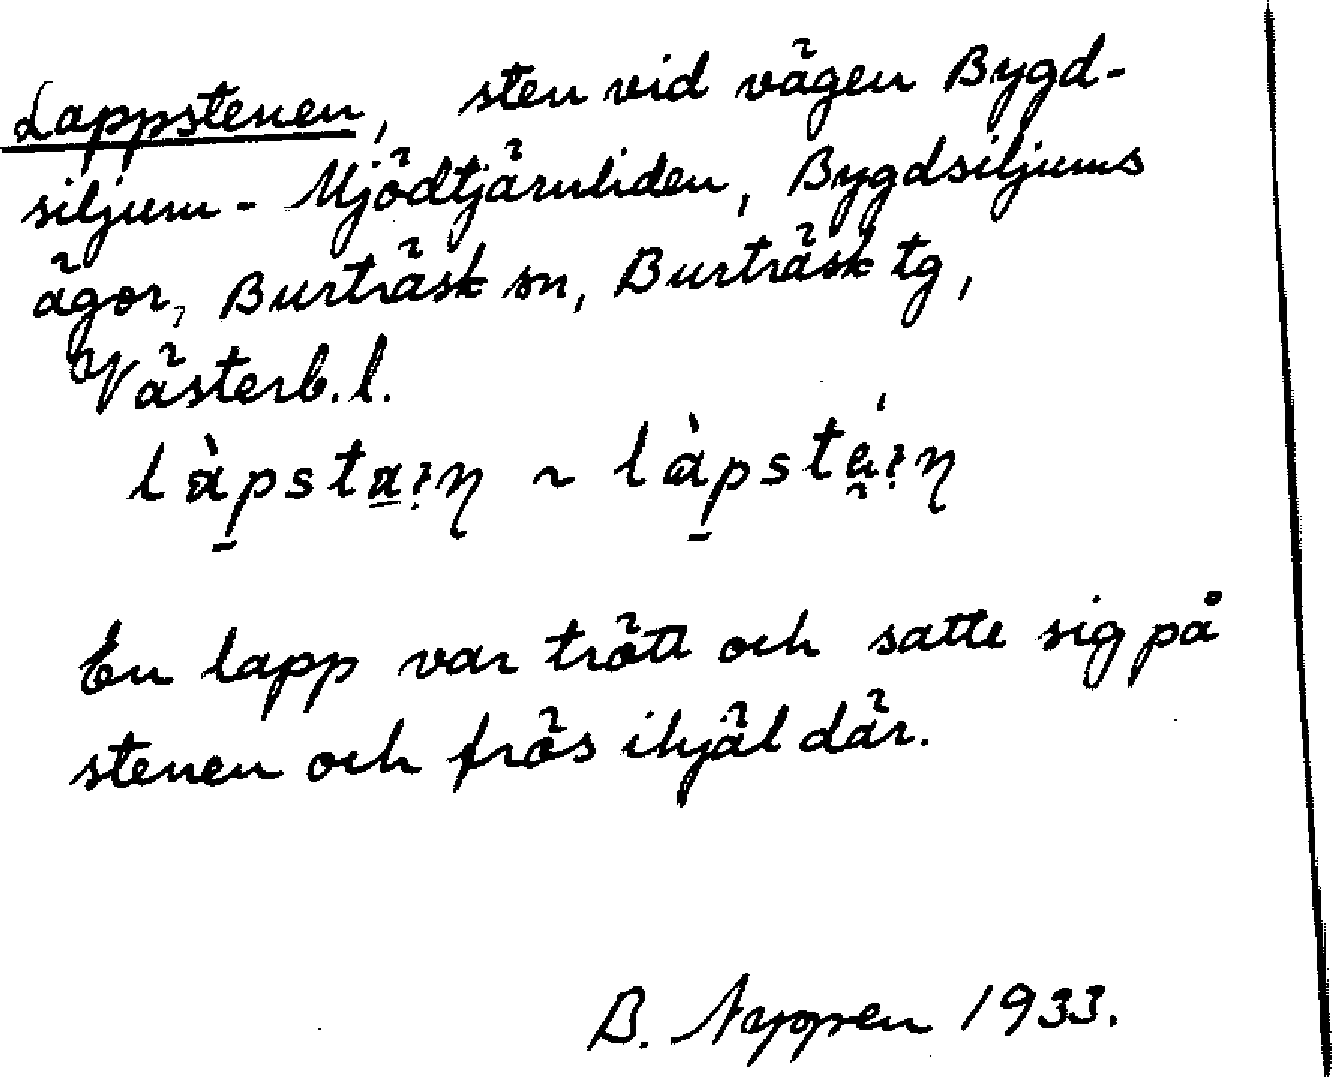 Lappstenen, sten vid vägen Bygd-
siljum - Mjödtjärnliden, Bygdsiljums
ägor, Burträsk sn, Burträsk tg,
Västerb. l.
làpsta̲i̯n̥ ~ làpstái̯n̥
En lapp var trött och satte sig på
stenen och frös ihjäl där.
B. Nyppen 1933.